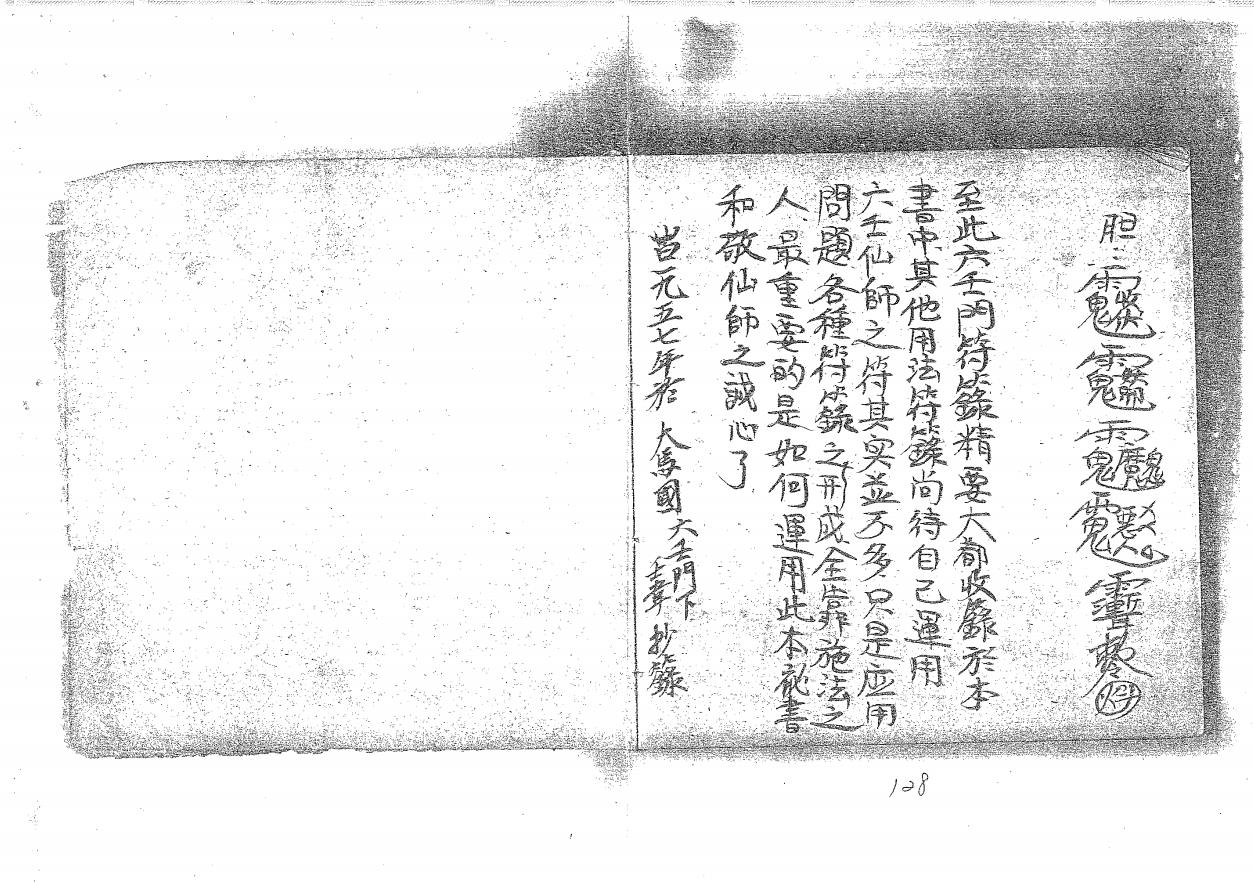 胆
至此六壬門符籙精要大都收錄於本
書中其他用法符籙尚待自己運用
六壬仙師之符其实並不多只是应用
問題各種符籙之形成全靠施法之
人最重要的是如何運用此本秘書
和敬仙師之誠心了
岂元五七年於 大馬國六壬門下 抄籙
128